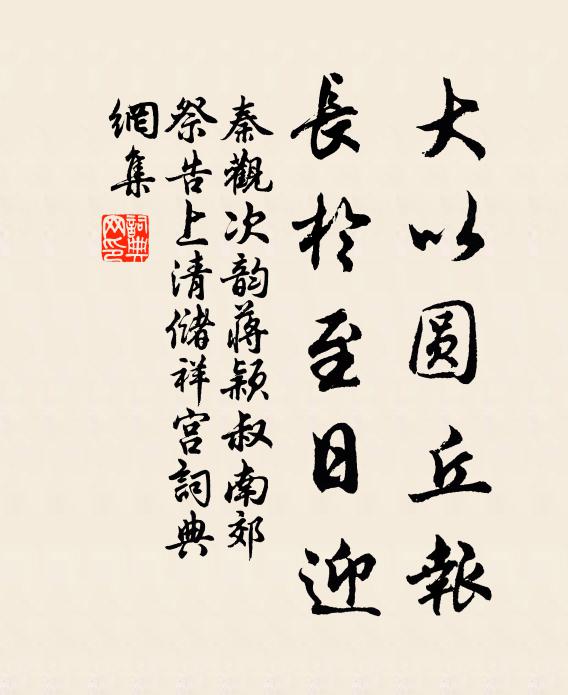 大以圓丘報
長於至日迎
秦觀次韵蔣穎叔南郊
祭告上清儲祥宮詞典
網集
詞典
网印